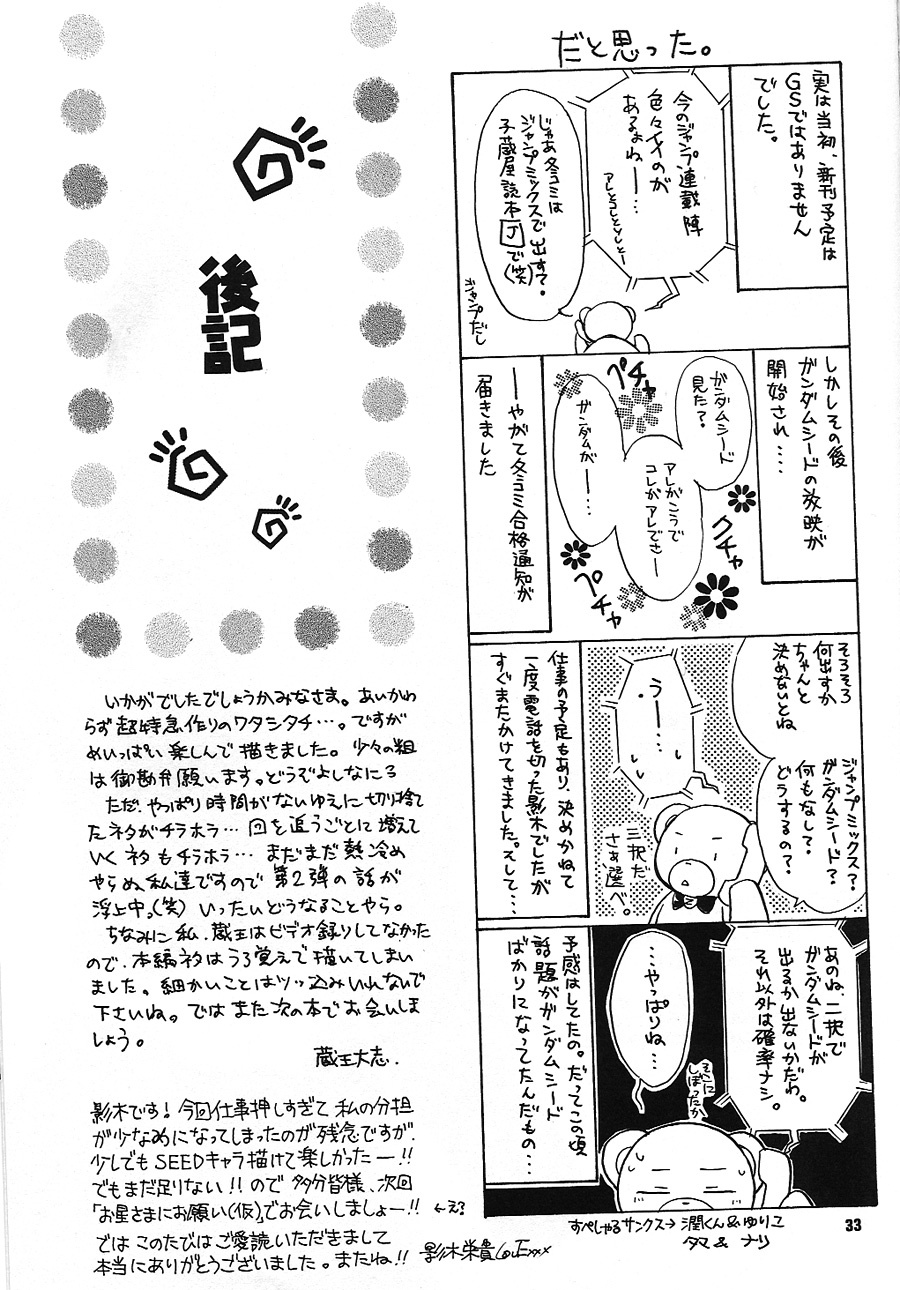 だと思った。
実は当初、新刊予定は
GSではありません
でした。
今のジャンプ連載陣
色々イイのが
あるよねー…
アレとコレとソレとー
じゃあ冬コミは
ジャンプミックスで出す?
子蔵屋読本Jで(笑)
ジャンプだし
しかしその後
ガンダムシードの放映が
開始され……
ガンダムシード
見た?
アレがこうで
コレがアレでさー
ガンダムがー…
ペチャ
クチャ
ペチャ
―やがて冬コミ合格通知が
届きました
そろそろ
何出すか
ちゃんと
決めないとね
ジャンプミックス?
ガンダムシード?
何もなしで?
どうするの?
うー…
三択だ
さあ選べ。
仕事の予定もあり、決めかねて
一度電話を切った影木でしたが
すぐまたかけてきました。そして…
あのね、二択で
ガンダムシードが
出るか出ないかだわ。
それ以外は確率ナシ。
そこに
しぼったか
…やっぱりね…
予感はしてたの。だってこの頃
話題がガンダムシード
ばかりになってたんだもの…
すぺしゃるサンクス→潤くん&ゆりこ
タマ & ナリ
33
後記
いかがでしたでしょうかみなさま。あいかわ
らず超特急作りのワタシタチ…。ですが
めいっぱい楽しんで描きました。少々の粗
は御勘弁願います。どうぞよしなに〜
ただ、やっぱり時間がないゆえに切り捨て
たネタがチラホラ… 回を追うごとに増えて
いくネタもチラホラ… まだまだ熱冷め
やらぬ私達ですので 第2弾の話が
浮上中。(笑) いったいどうなることやら。
ちなみに私、蔵王はビデオ録りしてなかった
ので、本編ネタはうろ覚えで描いてしまい
ました。細かいことはツッ込みいれないで
下さいね。ではまた次の本でお会いしま
しょう。
蔵王大志.
影木です! 今回仕事押しすぎて私の分担
が少なめになってしまったのが残念ですが、
少しでもSEEDキャラ描けて楽しかったー!!
でもまだ足りない!! ので 多分皆様、次回
「お星さまにお願い(仮)」でお会いしましょー!! ←え?
では このたびは ご愛読いただきまして
本当にありがとうございました。またね!! 影木栄貴